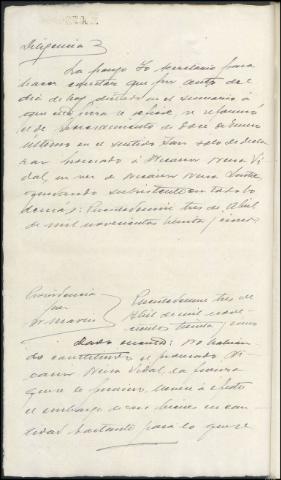 Diligencia
La pongo Yo secretario para
hacer constar que por auto de
dia de hoy, dictado en el sumario a
que esta pieza se refiere, se reformó
el de procesamiento de doce de Enero
último en el sentido solo de decla
rar procesado a Nicanor Neira Vi
dal, en vez de Nicanor Neira
quedando subsistente en todo lo
demás: Puentedeume tres de Abril
de mil novecientos treinta y cinco
Providencia
por
Sr.
Puentedeume tres de
Abril de mil nove-
cientos treinta y cinco
Dada cuenta: No habien-
do constituido el procesado, Ni
canor Neira Vidal, la fianza
que se le llévese a efecto
el embargo de sus bienes en can-
tidad bastante para lo que se